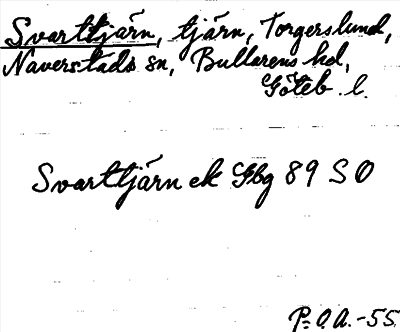 Svarttjärn, tjärn, Torgerslund,
Naverstads sn, Bullarens hd,
Göteb. l.
Svarttjärn ek Gbg 89 S O
P. O. A. -55